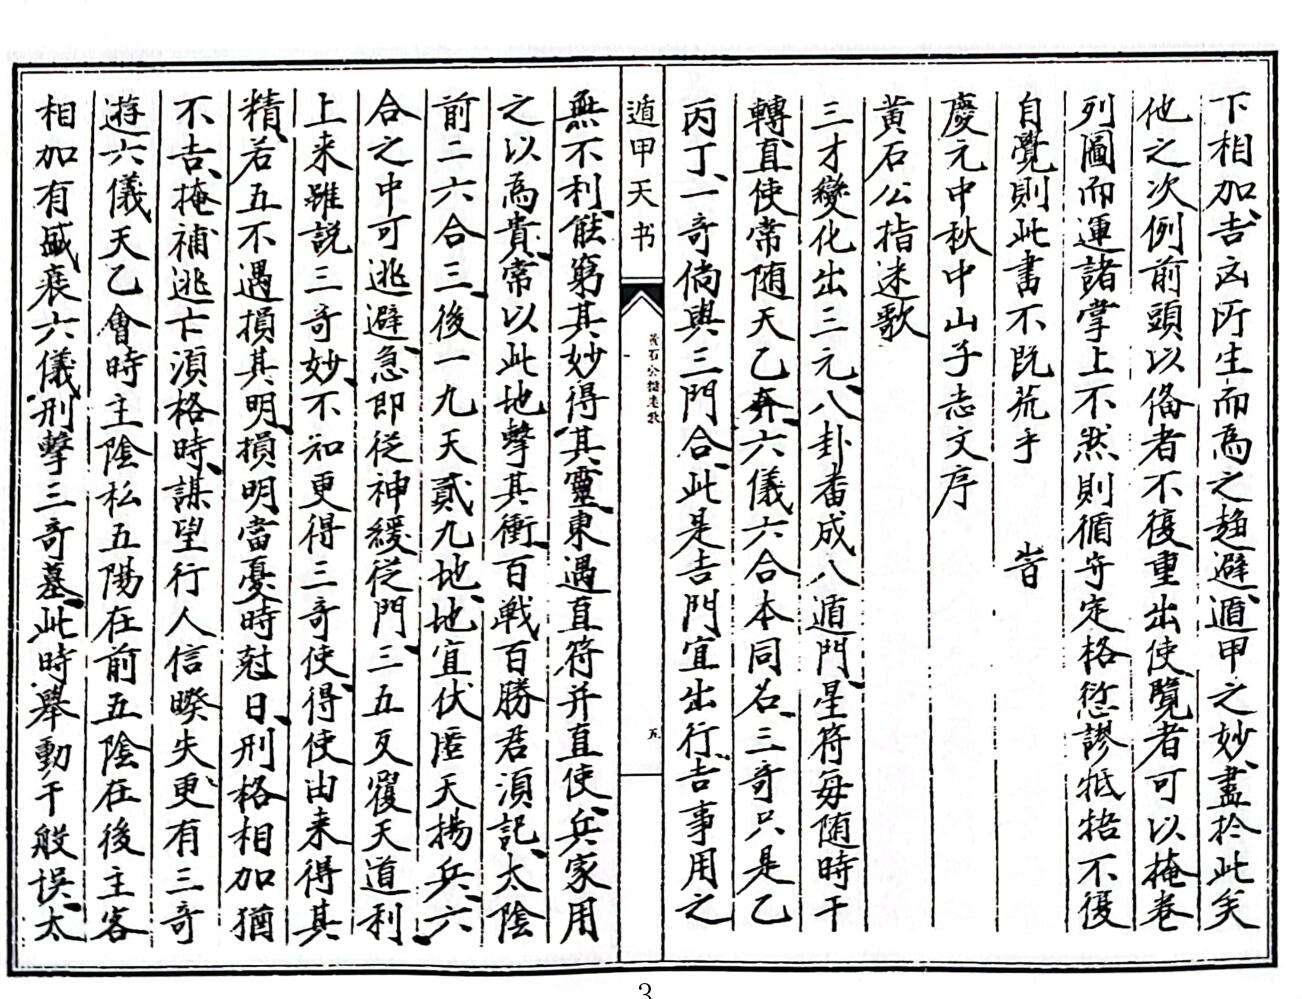 下相加吉凶所生而為之趨避遁甲之妙盡於此矣
他之次例前頭以俻者不復重出使覽者可以掩卷
列圖而運諸掌上不然則循守定格愆謬牴牾不復
自覺則此書不既荒乎 峕
慶元中秋中山子志文序
黄石公指迷歌
三才變化出三元八卦番成八遁門星符每随時干
轉直使常随天乙奔六儀六合本同名三奇只是乙
丙丁一奇倘與三門合此是吉門宜出行吉事用之
遁甲天书
黃石公指迷歌
五
無不利能窮其妙得其靈東遇直符并直使兵家用
之以為貴常以此地擊其衝百戦百勝君湏記太陰
前二六合三後一九天貳九地地宜伏匿天揚兵六
合之中可逃避急即従神緩従門三五反覆天道利
上来雖説三奇妙不和更得三奇使得使由来得其
精若五不遇損其明損明當憂時尅日刑格相加猶
不吉掩補逃亡湏格時謀望行人信暌失更有三奇
遊六儀天乙會時主陰私五陽在前五陰在後主客
相加有盛衰六儀刑擊三奇墓此時舉動千般悞太
3